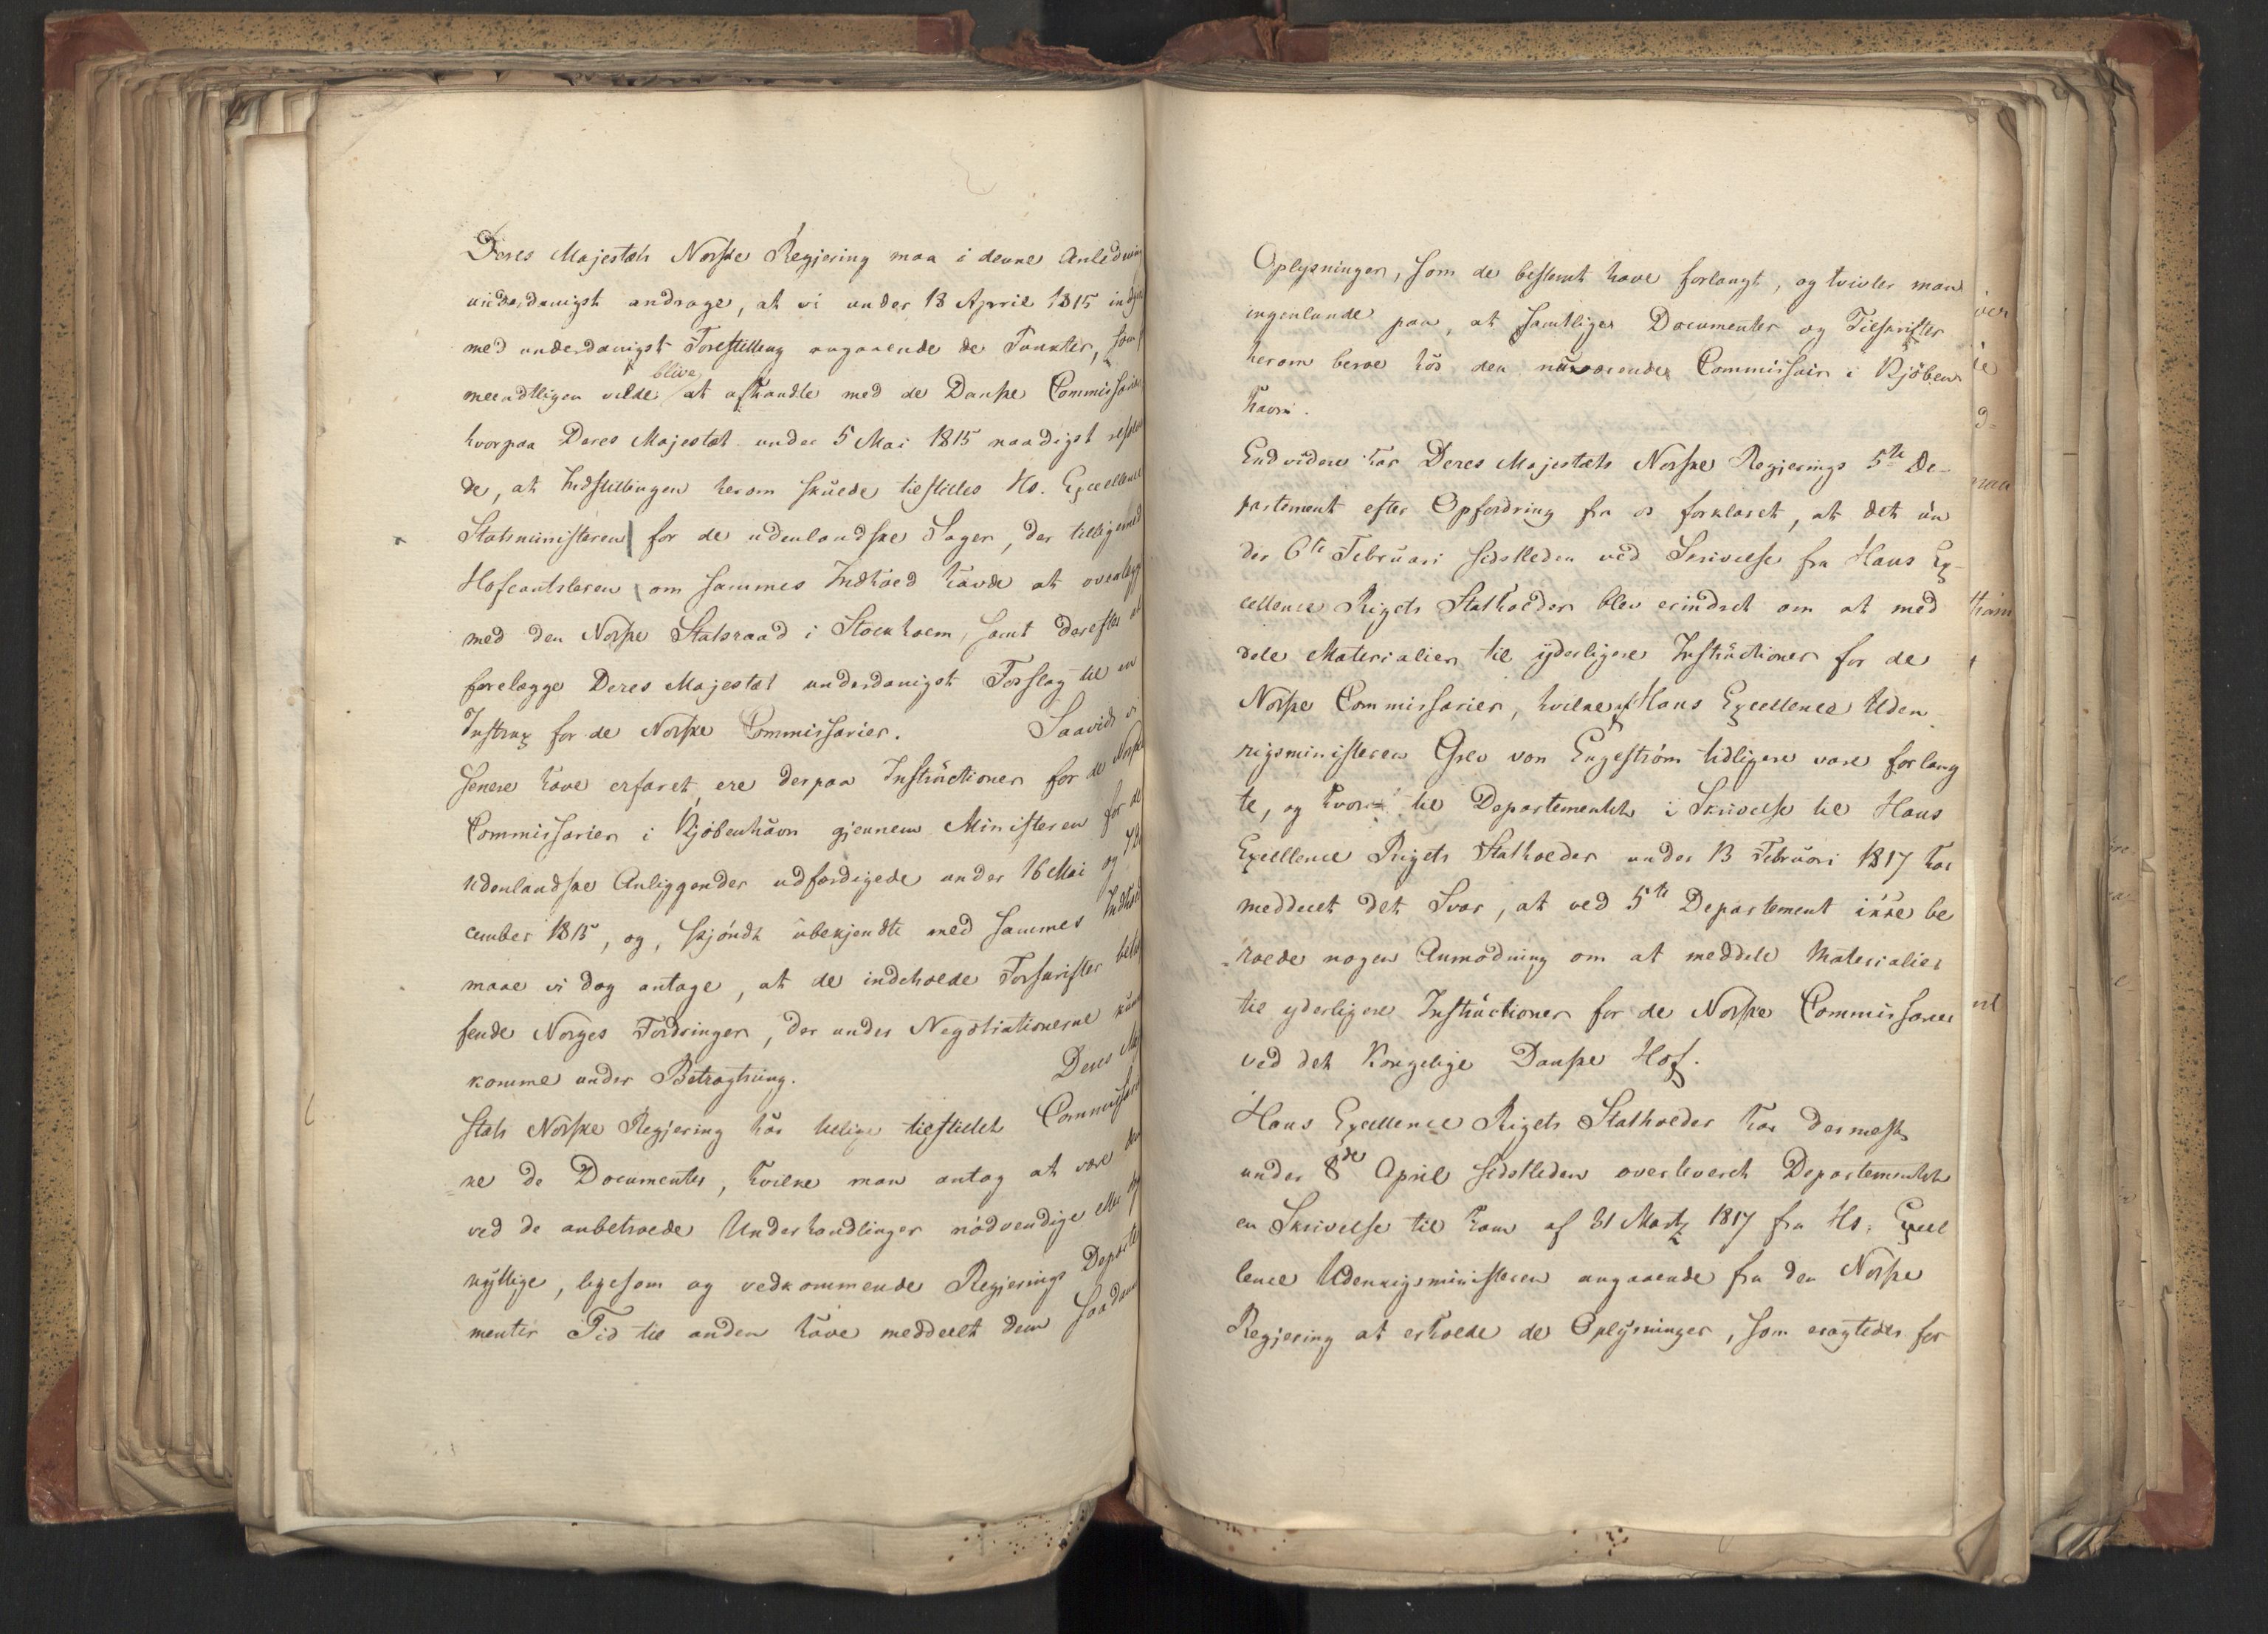 Deres Majestæts Norske Regjering maa i denne Anledning
underdanigst andrage, at vi under 18 April 1815 indgav
med underdanigst Forestilling angaaende de Punkter, som
meendtligen vilde blive at afhandle med de Danske Commissarier
hvorpaa Deres Majestæt under 5 Mai 1815 naadigst resolve
de, at Indstillingen herom skulde tilstilles Hs. Excellence
Statsministeren for de udenlandske Sager, der tilligemed
Hofcantsleren om sammes Indhold havde at overlægge
med den Norske Statsraad i Stockholm, samt derefter at
forelægge Deres Majestæt underdanigst Forslag til en
Instrux for de Norske Commissarier. Saavidt vi
senere have erfaret, ere derpaa Instructioner for de Norske
Commissarier i Kjöbenhavn gjennem Ministeren for de
udenlandske Anliggender udfærdigede under 16 Mai og 4 De
cember 1815, og, skjöndt ubekjendte med sammes Indhold
maae vi dog antage, at de indeholde Forskrifter betræf
fende Norges Fordringer, der under Negotiationerne kunne
komme under Betragtning. Deres Maje
stæts Norske Regjering har tillige tilstillet Commissarier
ne de Documenter, hvilke man antog at være dem
ved de anbetroede Underhandlinger nödvendige eller
nyttige, ligesom og vedkommende Regjerings Departe
menter Tid til anden have meddeelt dem saadanne
Oplysninger, som de bestemt have forlangt, og tvivler man
ingenlunde paa, at samtlige Documenter og Tilskrifter
herom beroe hos den nuværende Commissair i Kjöben
havn.
Endvidere har Deres Majestæts Norske Regjerings 5te De-
partement efter Opfordring fra os forklaret, at det un
der 6te Februari sidstleden ved Skrivelse fra Hans Ex-
cellence Rigets Statholder blev erindret om at med
dele Materialier til yderligere Instructioner for de
Norske Commissarier, hvilke af Hans Excellence Uden
rigsministeren Grev von Engeström tidligere vare forlang
te, og hvor til Departementet i Skrivelse til Hans
Excellence Rigets Statholder under 13 Februari 1817 har
meddeelt det Svar, at ved 5te Departement ikke be
roede nogen Anmodning om at meddele Materialier
til yderligere Instructioner for de Norske Commissarier
ved det Kongelige Danske Hof.
Hans Excellence Rigets Statholder har dernæst
under 8de April sidstleden overleveret Departementet
en Skrivelse til ham af 31 Martz 1817 fra Hs. Excel
lence Udenrigsministeren angaaende fra den Norske
Regjering at erholde de Oplysninger, som eragtedes for